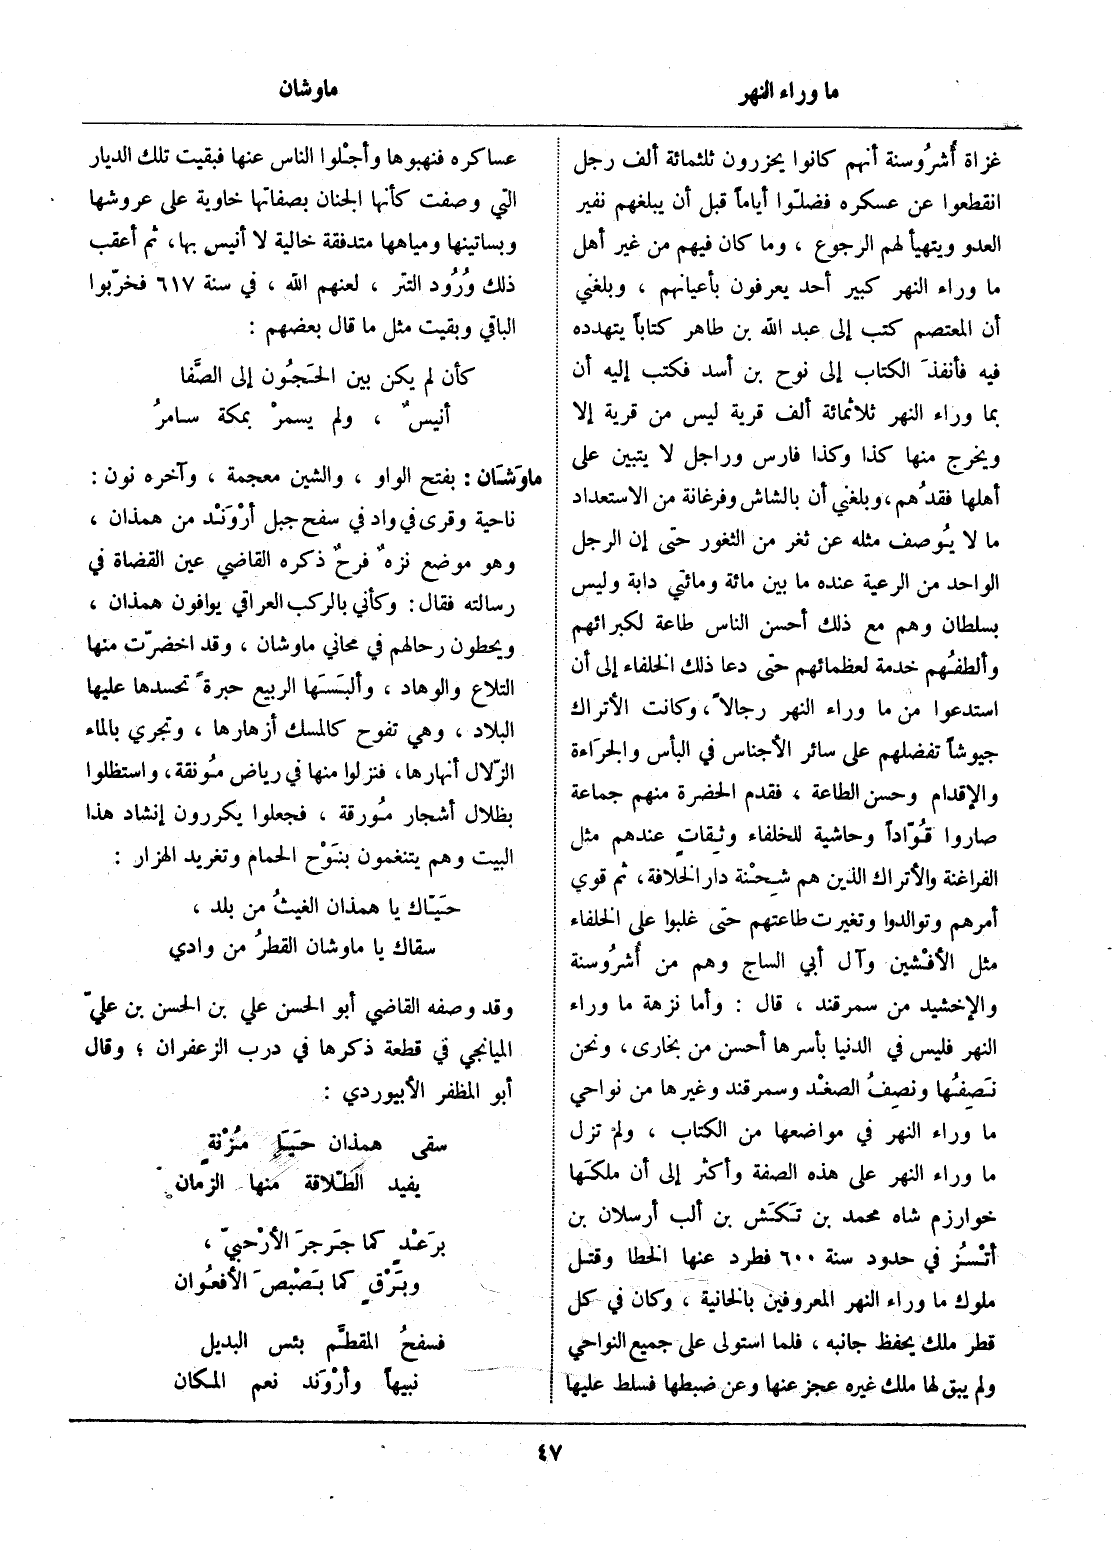 ما وراء النهر
ماوشان
غزاة أُشرُوسنة أنهم كانوا يحزرون ثلثمائة ألف رجل
انقطعوا عن عسكره فضلّوا أياماً قبل أن يبلغهم نفير
العدو ويتهيأ لهم الرجوع ، وما كان فيهم من غير أهل
ما وراء النهر كبير أحد يعرفون بأعيانهم ، وبلغني
أن المعتصم كتب إلى عبد الله بن طاهر كتاباً يتهدده
فيه فأنفذَ الكتاب إلى نوح بن أسد فكتب إليه أن
بما وراء النهر ثلاثمائة ألف قرية ليس من قرية إلا
ويخرج منها كذا وكذا فارس وراجل لا يتبين على
أهلها فقدُهم، وبلغني أن بالشاش وفرغانة من الاستعداد
ما لا يُوصف مثله عن ثغر من الثغور حتى إن الرجل
الواحد من الرعية عنده ما بين مائة ومائتي دابة وليس
بسلطان وهم مع ذلك أحسن الناس طاعة لكبرائهم
وألطفُهم خدمة لعظمائهم حتى دعا ذلك الخلفاء إلى أن
استدعوا من ما وراء النهر رجالاً، وكانت الأتراك
جيوشاً تفضلهم على سائر الأجناس في البأس والجراءة
والإقدام وحسن الطاعة ، فقدم الحضرة منهم جماعة
صاروا قُوّاداً وحاشية للخلفاء وثِقاتٍ عندهم مثل
الفراغنة والأتراك الذين هم شِحْنة دار الخلافة، ثم قوي
أمرهم وتوالدوا وتغيرت طاعتهم حتى غلبوا على الخلفاء
مثل الأفْشين وآل أبي الساج وهم من أُشرُوسنة
والإخشيد من سمرقند ، قال : وأما نزهة ما وراء
النهر فليس في الدنيا بأسرها أحسن من بخارى، ونحن
نَصِفُها ونصِفُ الصغْد وسمرقند وغيرها من نواحي
ما وراء النهر في مواضعها من الكتاب ، ولم تزل
ما وراء النهر على هذه الصفة وأكثر إلى أن ملكَها
خوارزم شاه محمد بن تَكَش بن ألب أرسلان بن
أَتْسُز في حدود سنة ٦٠٠ فطرد عنها الخطا وقتل
ملوك ما وراء النهر المعروفين بالخانية ، وكان في كل
قطر ملك يحفظ جانبه ، فلما استولى على جميع النواحي
ولم يبق لها ملك غيره عجز عنها وعن ضبطها فسلط عليها
عساكره فنهبوها وأجْلوا الناس عنها فبقيت تلك الديار
التي وصفت كأنها الجنان بصفاتها خاوية على عروشها
وبساتينها ومياهها متدفقة خالية لا أنيس بها، ثم أعقب
ذلك وُرُود التتر ، لعنهم الله ، في سنة ٦١٧ فخرّبوا
الباقي وبقيت مثل ما قال بعضهم :
كأن لم يكن بين الحَجُون إلى الصَّفا
أنيسٌ ، ولم يسمرْ بمكة سامرُ
ماوَشَان: بفتح الواو ، والشين معجمة ، وآخره نون :
ناحية وقرى في واد في سفح جبل أرْوَنْد من همذان ،
وهو موضع نزهٌ فرحٌ ذكره القاضي عين القضاة في
رسالته فقال : وكأني بالركب العراقي يوافون همذان ،
ويحطون رحالهم في محاني ماوشان ، وقد اخضرّت منها
التلاع والوهاد ، وألبَسَها الربيع حبرةً تحسدها عليها
البلاد ، وهي تفوح كالمسك أزهارها ، وتجري بالماء
الزّلال أنهارها، فنزلوا منها في رياض مُونقة، واستظلوا
بظلال أشجار مُورقة ، فجعلوا يكررون إنشاد هذا
البيت وهم يتنغمون بنَوْح الحمام وتغريد الهزار :
حَيّاك يا همذان الغيثُ من بلد ،
سقاك يا ماوشان القطرُ من وادي
وقد وصفه القاضي أبو الحسن علي بن الحسن بن عليّ
الميانجي في قطعة ذكرها في درب الزعفران ؛ وقال
أبو المظفر الأبيوردي :
سقى همذان حَيَا مُزْنةٍ
يفيد الطّلاقة منها الزمان
برَعْدٍ كما جَرجرَ الأرْحبيّ ،
وبَرْقٍ كما بَصْبصَ الأفعُوان
فسفحُ المقطَّم بئس البديل
نبيهاً وأرْوَند نعم المكان
٤٧